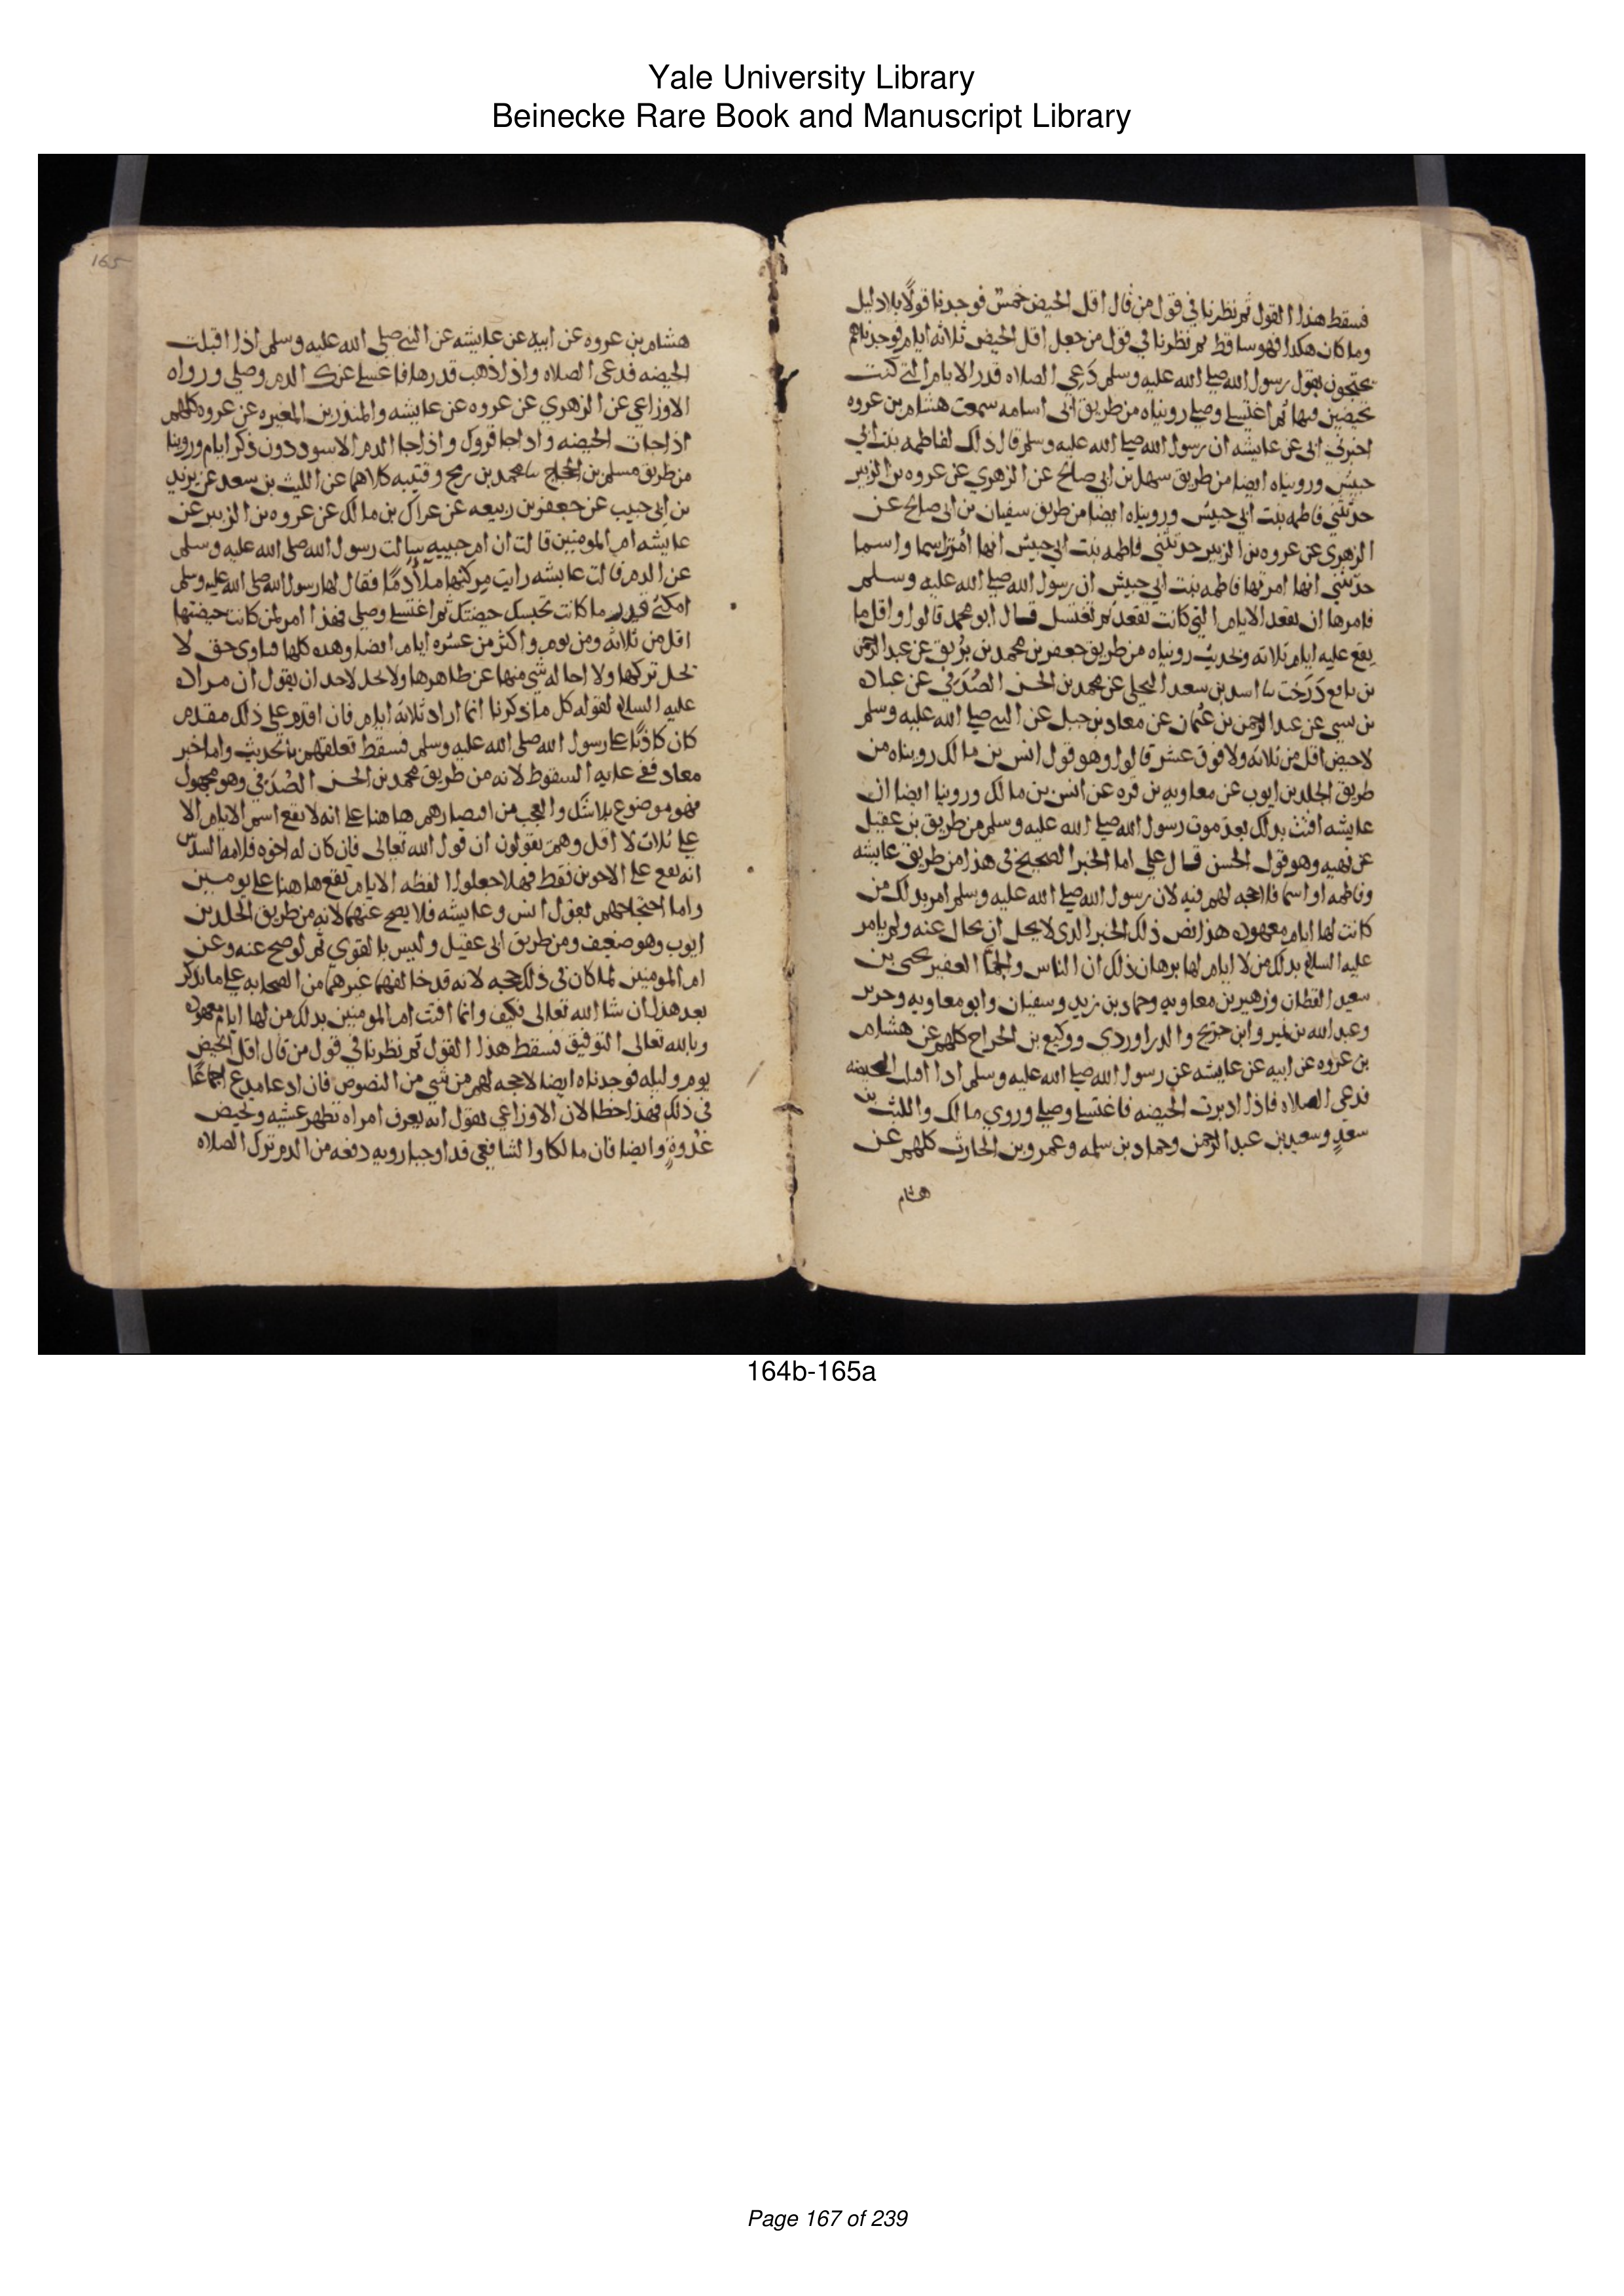 Yale University Library
Beinecke Rare Book and Manuscript Library
فسقط هذا القول ثم نظرنا في قول من قال اقل الحيض خمس فوجدنا قولًا بلا دليل
وما كان هكذا فهو ساقط ثم نظرنا في قول من جعل اقل الحيض ثلاثه ايام فوجدناهم
يحتجون بقول رسول الله صلى الله عليه وسلم دَعِي الصلاه قدر الايام التي كنت
تحيضين فيها ثم اغتسلي وصلي رويناه من طريق ابي اسامه سمعت هشام بن عروه
اخبرني ابي عن عايشه ان رسول الله صلى الله عليه وسلم قال ذلك لفاطمه بنت ابي
حبيش ورويناه ايضا من طريق سهل بن ابي صالح عن الزهري عن عروه بن الزبير
حدثتني فاطمه بنت ابي حبيش ورويناه ايضا من طريق سفيان بن ابي صالح عن
الزهري عن عروه بن الزبير حدثتني فاطمه بنت ابي حبيش انها امرت اسما واسما
حدثتني انها امرتها فاطمه بنت ابي حبيش ان رسول الله صلى الله عليه وسلم
فامرها ان تقعد الايام التي كانت تقعد ثم تغتسل قال ابو محمد قالوا واقل ما
يقع عليه ايام ثلاثه وبحديث رويناه من طريق جعفر بن محمد بن بُرَيق عن عبد الرحمن
بن نافع دَرَخت نا اسد بن سعد البجلي عن محمد بن الحسن الصُدَفي عن عباده
بن نسي عن عبد الرحمن بن عثمان عن معاد بن جبل عن النبي صلى الله عليه وسلم
لا حيض اقل من ثلاثه ولا فوق عشر قالوا وهو قول انس بن مالك رويناه من
طريق الجلد بن ايوب عن معاويه بن قره عن انس بن مالك وروينا ايضا ان
عايشه افتت بدلك بعد موت رسول الله صلى الله عليه وسلم من طريق بن عقيل
عن نهيه وهو قول الحسن قال علي اما الخبر الصحيح في هذا من طريق عايشه
وفاطمه او اسما فلا حجه لهم فيه لان رسول الله صلى الله عليه وسلم امر بدلك من
كانت لها ايام معهوده هذا نص ذلك الخبر الدى لا يحل ان يحال عنه ولم يامر
عليه السلام بدلك من لا ايام لها برهان ذلك ان الناس والجمَّا الغفير يحيى بن
سعيد القطان وزهير بن معاويه وحماد بن زيد وسفيان وابو معاويه وجرير
وعبد الله بن نمير وابن جريج والدراوردي ووكيع بن الجراح كلهم عن هشام
بن عروه عن ابيه عن عايشه عن رسول الله صلى الله عليه وسلم ادا اقبلت الحيضه
فدعي الصلاه فاذا ادبرت الحيضه فاغتسلي وصلي وروي مالك والليث بن
سعدٍ وسعيد بن عبد الرحمن وحماد بن سلمه وعمرو بن الحارث كلهم عن
هشام
165
هشام بن عروه عن ابيه عن عايشه عن النبي صلى الله عليه وسلم اذا اقبلت
الحيضه فدعى الصلاه واذا ذهب قدرها فاغسلي عنك الدم وصلي ورواه
الاوزاعي عن الزهري عن عروه عن عايشه والمنذر بن المغيره عن عروه كلهم
اذا جات الحيضه وادا جا قروك واذا جا الدم الاسود دون ذكر ايام وروينا
من طريق مسلم بن الحجاج نا محمد بن رمح وقتيبه كلاهما عن الليث بن سعد عن يزيد
بن ابي حبيب عن جعفر بن ربيعه عن عراك بن مالك عن عروه بن الزبير عن
عايشه ام المومنين قالت ان ام حبيبه سالت رسول الله صلى الله عليه وسلم
عن الدم قالت عايشه رايت مركنها ملأ دمًا فقال لها رسول الله صلى الله عليه وسلم
امكثي قدر ما كانت تحبسك حيضتك ثم اغتسلي وصلي فهذا امر لمن كانت حيضتها
اقل من ثلاثه ومن يوم واكثر من عشره ايام ايضا وهده كلها فتاوى حق لا
يحل تركها ولا احاله شي منها عن ظاهرها ولا يحل لاحد ان يقول ان مراده
عليه السلام لقوله كل ما ذكرنا انما اراد ثلاثه ايام فان اقدم على ذلك مقدم
كان كاذبًا على رسول الله صلى الله عليه وسلم فسقط تعلقهم بالحديث واما خبر
معاد ففي غايه السقوط لانه من طريق محمد بن الحسن الصُدَفي وهو مجهول
فهو موضوع بلا شَك والعجب من اقتصارهم هاهنا على انه لا يقع اسم الايام الا
على ثلاث لا اقل وهم يقولون ان قول الله تعالى فان كان له اخوه فلامه السدس
انه يقع على الاخوين فقط فهلا جعلوا لفظه الايام تقع هاهنا على يومين
واما احتجاجهم بقول انس وعايشه فلا يصح عنهما لانه من طريق الجلد بن
ايوب وهو ضعيف ومن طريق ابى عقيل وليس بالقوي ثم لو صح عنه وعن
ام المومنين لما كان في ذلك حجه لانه قد خالفهما غيرهما من الصحابه على ما نذكر
بعد هذا ان شا الله تعالى فكيف وانما افتت ام المومنين بدلك من لها ايام معهوده
وبالله تعالى التوفيق فسقط هذا القول ثم نظرنا في قول من قال اقل الحيض
يوم وليله فوجدناه ايضا لا حجه لهم من شي من النصوص فان ادعا مدع اجماعًا
في ذلك فهذا خطا لان الاوزاعي يقول انه يعرف امراه تطهر عشيه وتحيض
غدوةٍ وايضا فان مالكا والشافعي قد اوجبا برويه دفعه من الدم ترك الصلاه
164b-165a
Page 167 of 239